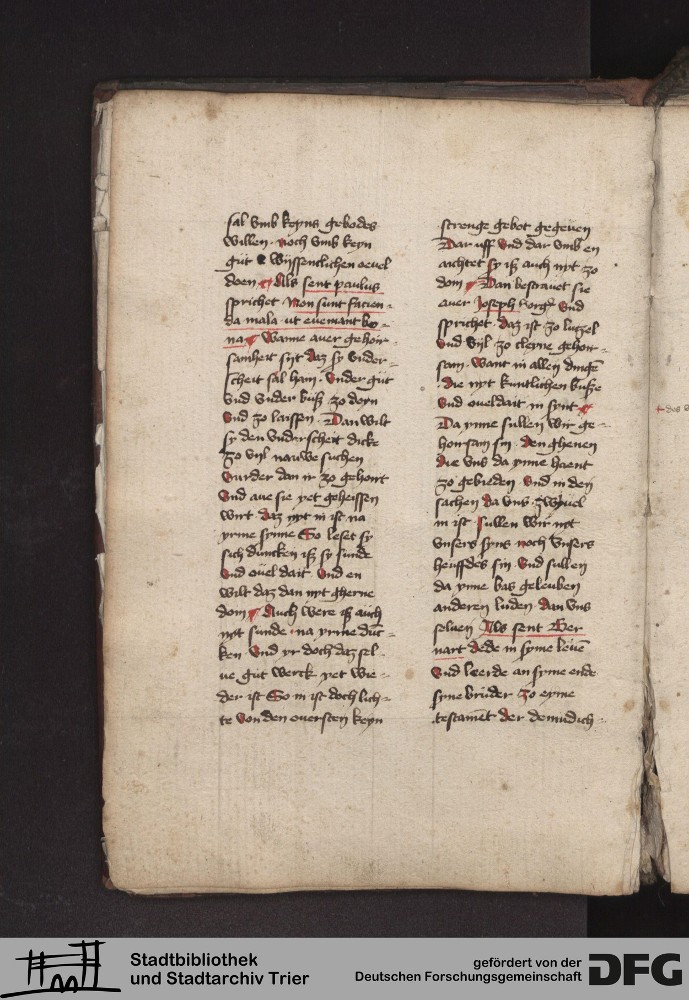 sal vmb keyns gebodes
willen · noch vmb keyn
gůt wyssentlichen oeuel
doen Als sent paulus
sprichet Non sunt facien-
da mala ut eueniant bo-
na Wanne auer gehoir-
samheit syt daz sy vnder-
scheit sal hain · vnder gůt
vnd vnder bůß zo doyn
vnd zo laissen · Dan wilt
sy den vnderscheit dicke
zo vyl nauwe suchen
vurder dan ir zo gehoirt
vnd aue sie yet geheissen
wirt daz nyt in ist na
yrme synne So leset sy
sich duncken iß sy sunde
vnd ouel dait · vnd en
wilt daz dan nyt gherne
doin Auch were iß auch
nyt sunde na yrme dūc-
ken · vnd yr doch daz sel-
ue gůt werck yet wie-
der ist So in ist doch lich-
te von den ouersten keyn
strenge gebot gegeuen
Dar uff vnd dar vmb en
aichtet sy iß auch nyt zo
doin Dan beschreuet sie
auer Joseph vnd
sprichet · daz ist zo lutzel
vnd vyl zo cleyne gehoir-
sam · Want in allen dingē
die nyt kuntlichen buße
vnd oueldait in synt
Da ynne sullen wir ge-
horsam sin · den ghenen
die vns da ynne haent
zo gebieden · vnd in den
sachen da vns zwyuel
in ist sullen wir nyt
vnsers syns noch vnsers
heuffdes sin · vnd sullen
da ynne bas geleuben
anderen luden · dan vns
seluen Als sent Ber
nart dede in syme leuē
vnd leerde an syme ende
syne brüder zo eyme
testamēt der demüdich-
Stadtbibliothek
und Stadtarchiv Trier
gefördert von der
Deutschen Forschungsgemeinschaft
DFG